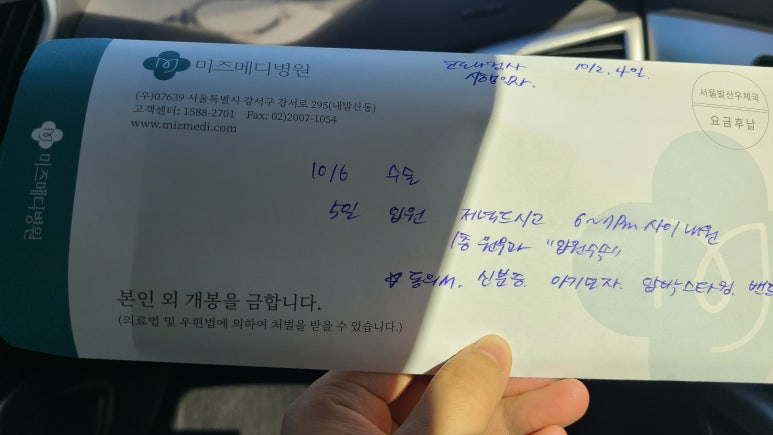 미즈메디병원
코로나검사 10/2. 4일.
시험있자.
(우)07639 서울특별시 강서구 강서로 295(내발산동)
고객센터: 1588-2701 Fax: 02)2007-1054
www.mizmedi.com
서울발산우체국
요금후납
미즈메디병원
10/6 수술
5일 입원 저녁드시고 6~7pm 사이 내원
1층 원무과 "입원수속"
☆ 동의서. 신분증. 아기모자. 압박스타킹. 밴드
본인 외 개봉을 금합니다.
(의료법 및 우편법에 의하여 처벌을 받을 수 있습니다.)